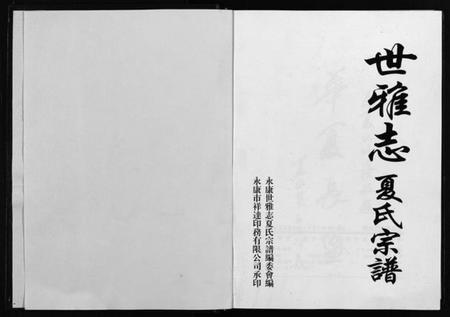 世雅志夏氏宗譜
永康世雅志夏氏宗譜編委會編
永康市祥達印務有限公司承印